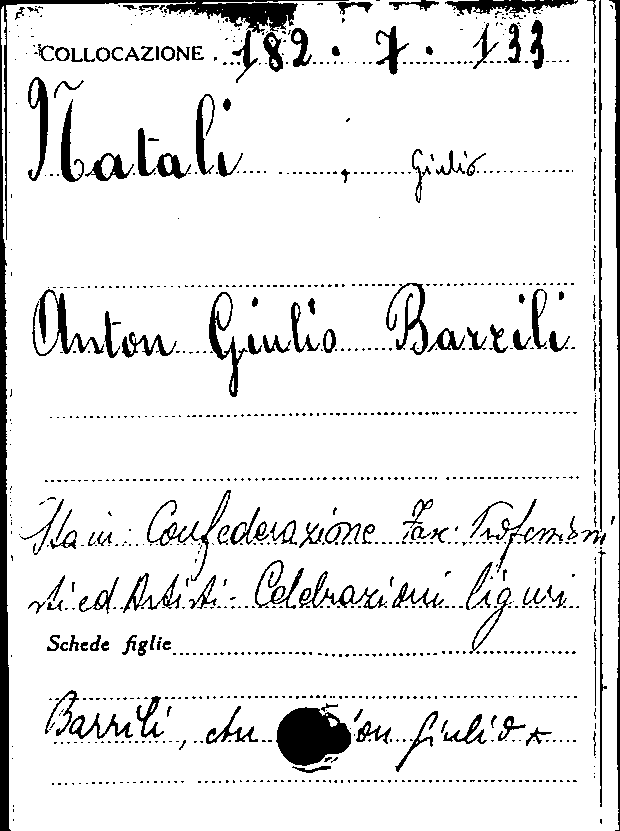 COLLOCAZIONE . 182 . 7 . 133
Natali , Giulio
Anton Giulio Barrili
Sta in: Confederazione Fasc. Professioni
sti ed Artisti - Celebrazioni liguri
Schede figlie
Barrili, An on Giulio